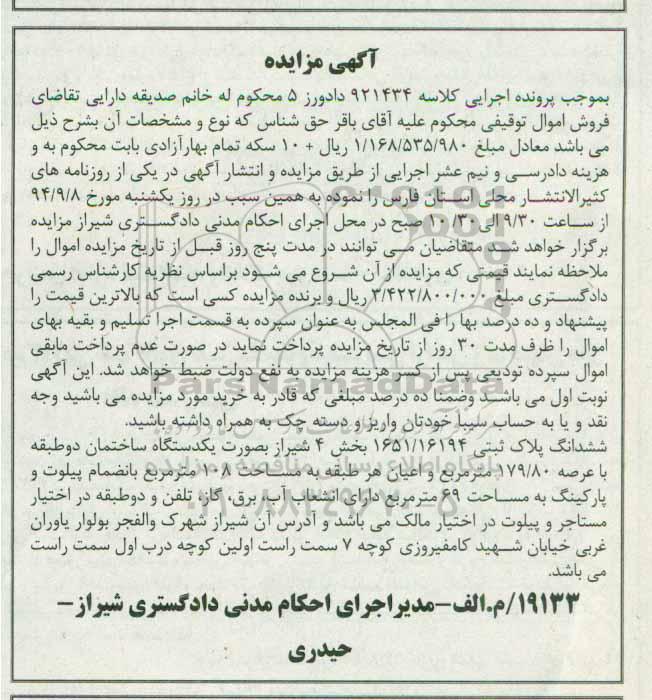 آگهی مزایده
بموجب پرونده اجرایی کلاسه ۹۲۱۴۳۴ دادورز ۵ محکوم له خانم صدیقه دارایی تقاضای
فروش اموال توقیفی محکوم علیه آقای باقر حق شناس که نوع و مشخصات آن بشرح ذیل
می باشد معادل مبلغ ۱/۱۶۸/۵۳۵/۹۸۰ ریال + ۱۰ سکه تمام بهارآزادی بابت محکوم به و
هزینه دادرسی و نیم عشر اجرایی از طریق مزایده و انتشار آگهی در یکی از روزنامه های
کثیرالانتشار محلی استان فارس را نموده به همین سبب در روز یکشنبه مورخ ۹۴/۹/۸
از ساعت ۹/۳۰ الی ۱۰/۳۰ صبح در محل اجرای احکام مدنی دادگستری شیراز مزایده
برگزار خواهد شد متقاضیان می توانند در مدت پنج روز قبل از تاریخ مزایده اموال را
ملاحظه نمایند قیمتی که مزایده از آن شروع می شود براساس نظریه کارشناس رسمی
دادگستری مبلغ ۳/۴۲۲/۸۰۰/۰۰۰ ریال و برنده مزایده کسی است که بالاترین قیمت را
پیشنهاد و ده درصد بها را فی المجلس به عنوان سپرده به قسمت اجرا تسلیم و بقیه بهای
اموال را ظرف مدت ۳۰ روز از تاریخ مزایده پرداخت نماید در صورت عدم پرداخت مابقی
اموال سپرده تودیعی پس از کسر هزینه مزایده به نفع دولت ضبط خواهد شد. این آگهی
نوبت اول می باشد وضمنا ده درصد مبلغی که قادر به خرید مورد مزایده می باشید وجه
نقد و یا به حساب سیبا خودتان واریز و دسته چک به همراه داشته باشید.
ششدانگ پلاک ثبتی ۱۶۵۱/۱۶۱۹۴ بخش ۴ شیراز بصورت یکدستگاه ساختمان دوطبقه
با عرصه ۱۷۹/۸۰ مترمربع و اعیان هر طبقه به مساحت ۱۰۸ مترمربع بانضمام پیلوت و
پارکینگ به مساحت ۶۹ مترمربع دارای انشعاب آب، برق، گاز، تلفن و دوطبقه در اختیار
مستاجر و پیلوت در اختیار مالک می باشد و آدرس آن شیراز شهرک والفجر بولوار یاوران
غربی خیابان شهید کامفیروزی کوچه ۷ سمت راست اولین کوچه درب اول سمت راست
می باشد.
۱۹۱۳۳/م.الف-مدیراجرای احکام مدنی دادگستری شیراز-
حیدری
ParsNamadData
پایگاه اطلاع رسانی مناقصه و مزایده